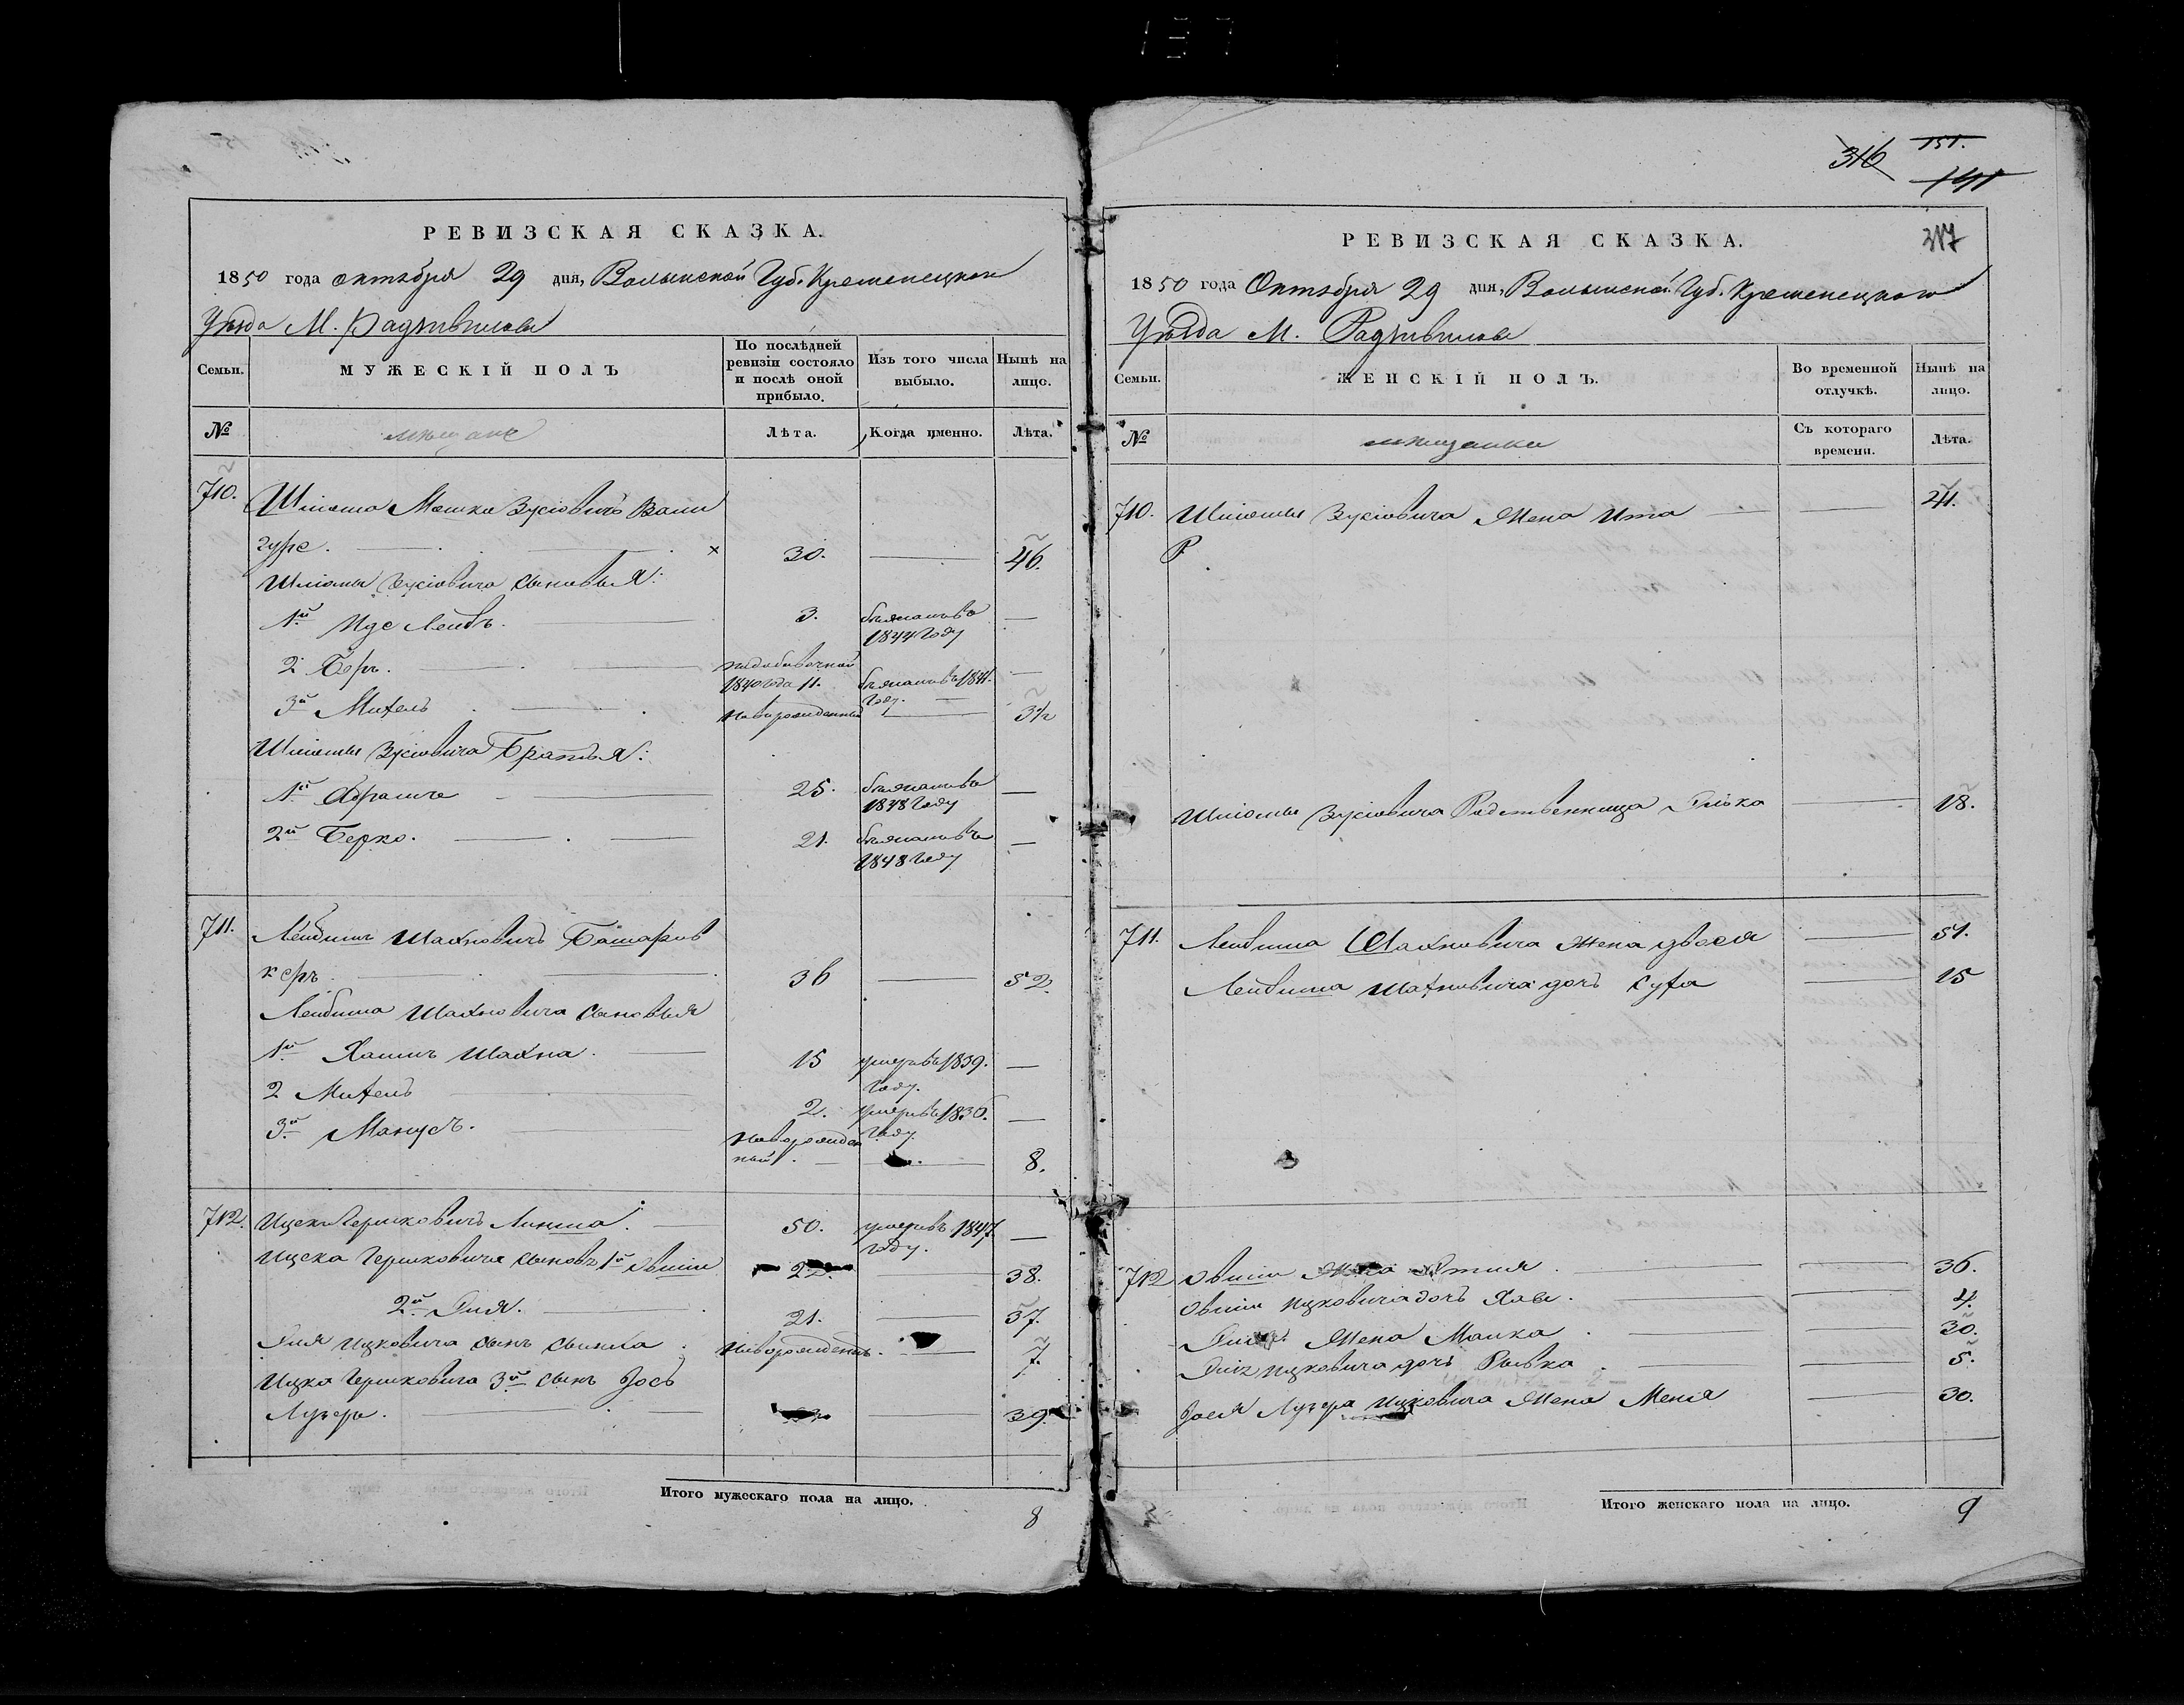 РЕВИЗСКАЯ СКАЗКА.
1850 года октября 29 дня, Волынской Губ. Кременецкого
Уѣзда М. Радзивилова
Семьи.
МУЖЕСКІЙ ПОЛЪ
По послѣдней
ревизіи состояло
и послѣ оной
прибыло.
Изъ того числа
выбыло.
Нынѣ на
лицо.
№
мѣщане
Лѣта.
Когда именно.
Лѣта.
710.
Шліома Мошко Зусіовичъ Вали
гурс. 30. 46.
Шліомы Зусіовича сыновья:
1й Иде Лейбъ. 3. бѣжалъ въ
1844 Году
2 Беръ.
1840 года 11. бѣжалъ въ 1841.
Году.
3й Михель новорожденный 3½
Шліомы Зусіовича Братья:
1й Абрамъ 25. бѣжалъ въ
1848 Году
2й Берко. 21. бѣжалъ въ
1848 Году
711. Лейбишъ Шахновичъ
керъ 36 52.
Лейбиша Шахновича сыновья
1й Хаимъ Шахна. 15 умеръ въ 1839.
Году.
2 Михель 2. умеръ въ 1836.
Году
3й Манусъ. новорожден
ный. 8.
712. Ицско Гершковичъ 50. умеръ въ 1847
году.
Ицска Гершковича сыновья 1й Овшія 22. 38.
2й Элия. 21. 37.
Элия Ицковича сынъ новорожденъ. 7.
Ицка Гершковича 3й сынъ Іось
Лузеръ. 39.
Итого мужескаго пола на лицо.
8
316 151.
141
317
РЕВИЗСКАЯ СКАЗКА.
1850 года Октября 29 дня, Волынской Губ. Кременецкого
Уѣзда М. Радзивилова
Семьи.
ЖЕНСКІЙ ПОЛЪ.
Во временной
отлучкѣ.
Нынѣ на
лицо.
№
мѣщанки
Съ котораго
времени.
Лѣта.
710. Шліомы Зусіовича Жена Ита 41.
Шліомы Зусіовича Родственница 18.
711. Лейбиша Шахновича жена Двося 51.
Лейбиша Шахновича дочь Сура 15
712 Овшіи Жена 36.
Овшіи Ицковича дочь Хава. 4.
Элии Жена Малка 30.
Элии Ицковича дочь Рывка 5.
Іося Лузера Ицковича Жена Меня 30.
Итого женскаго пола на лицо.
9